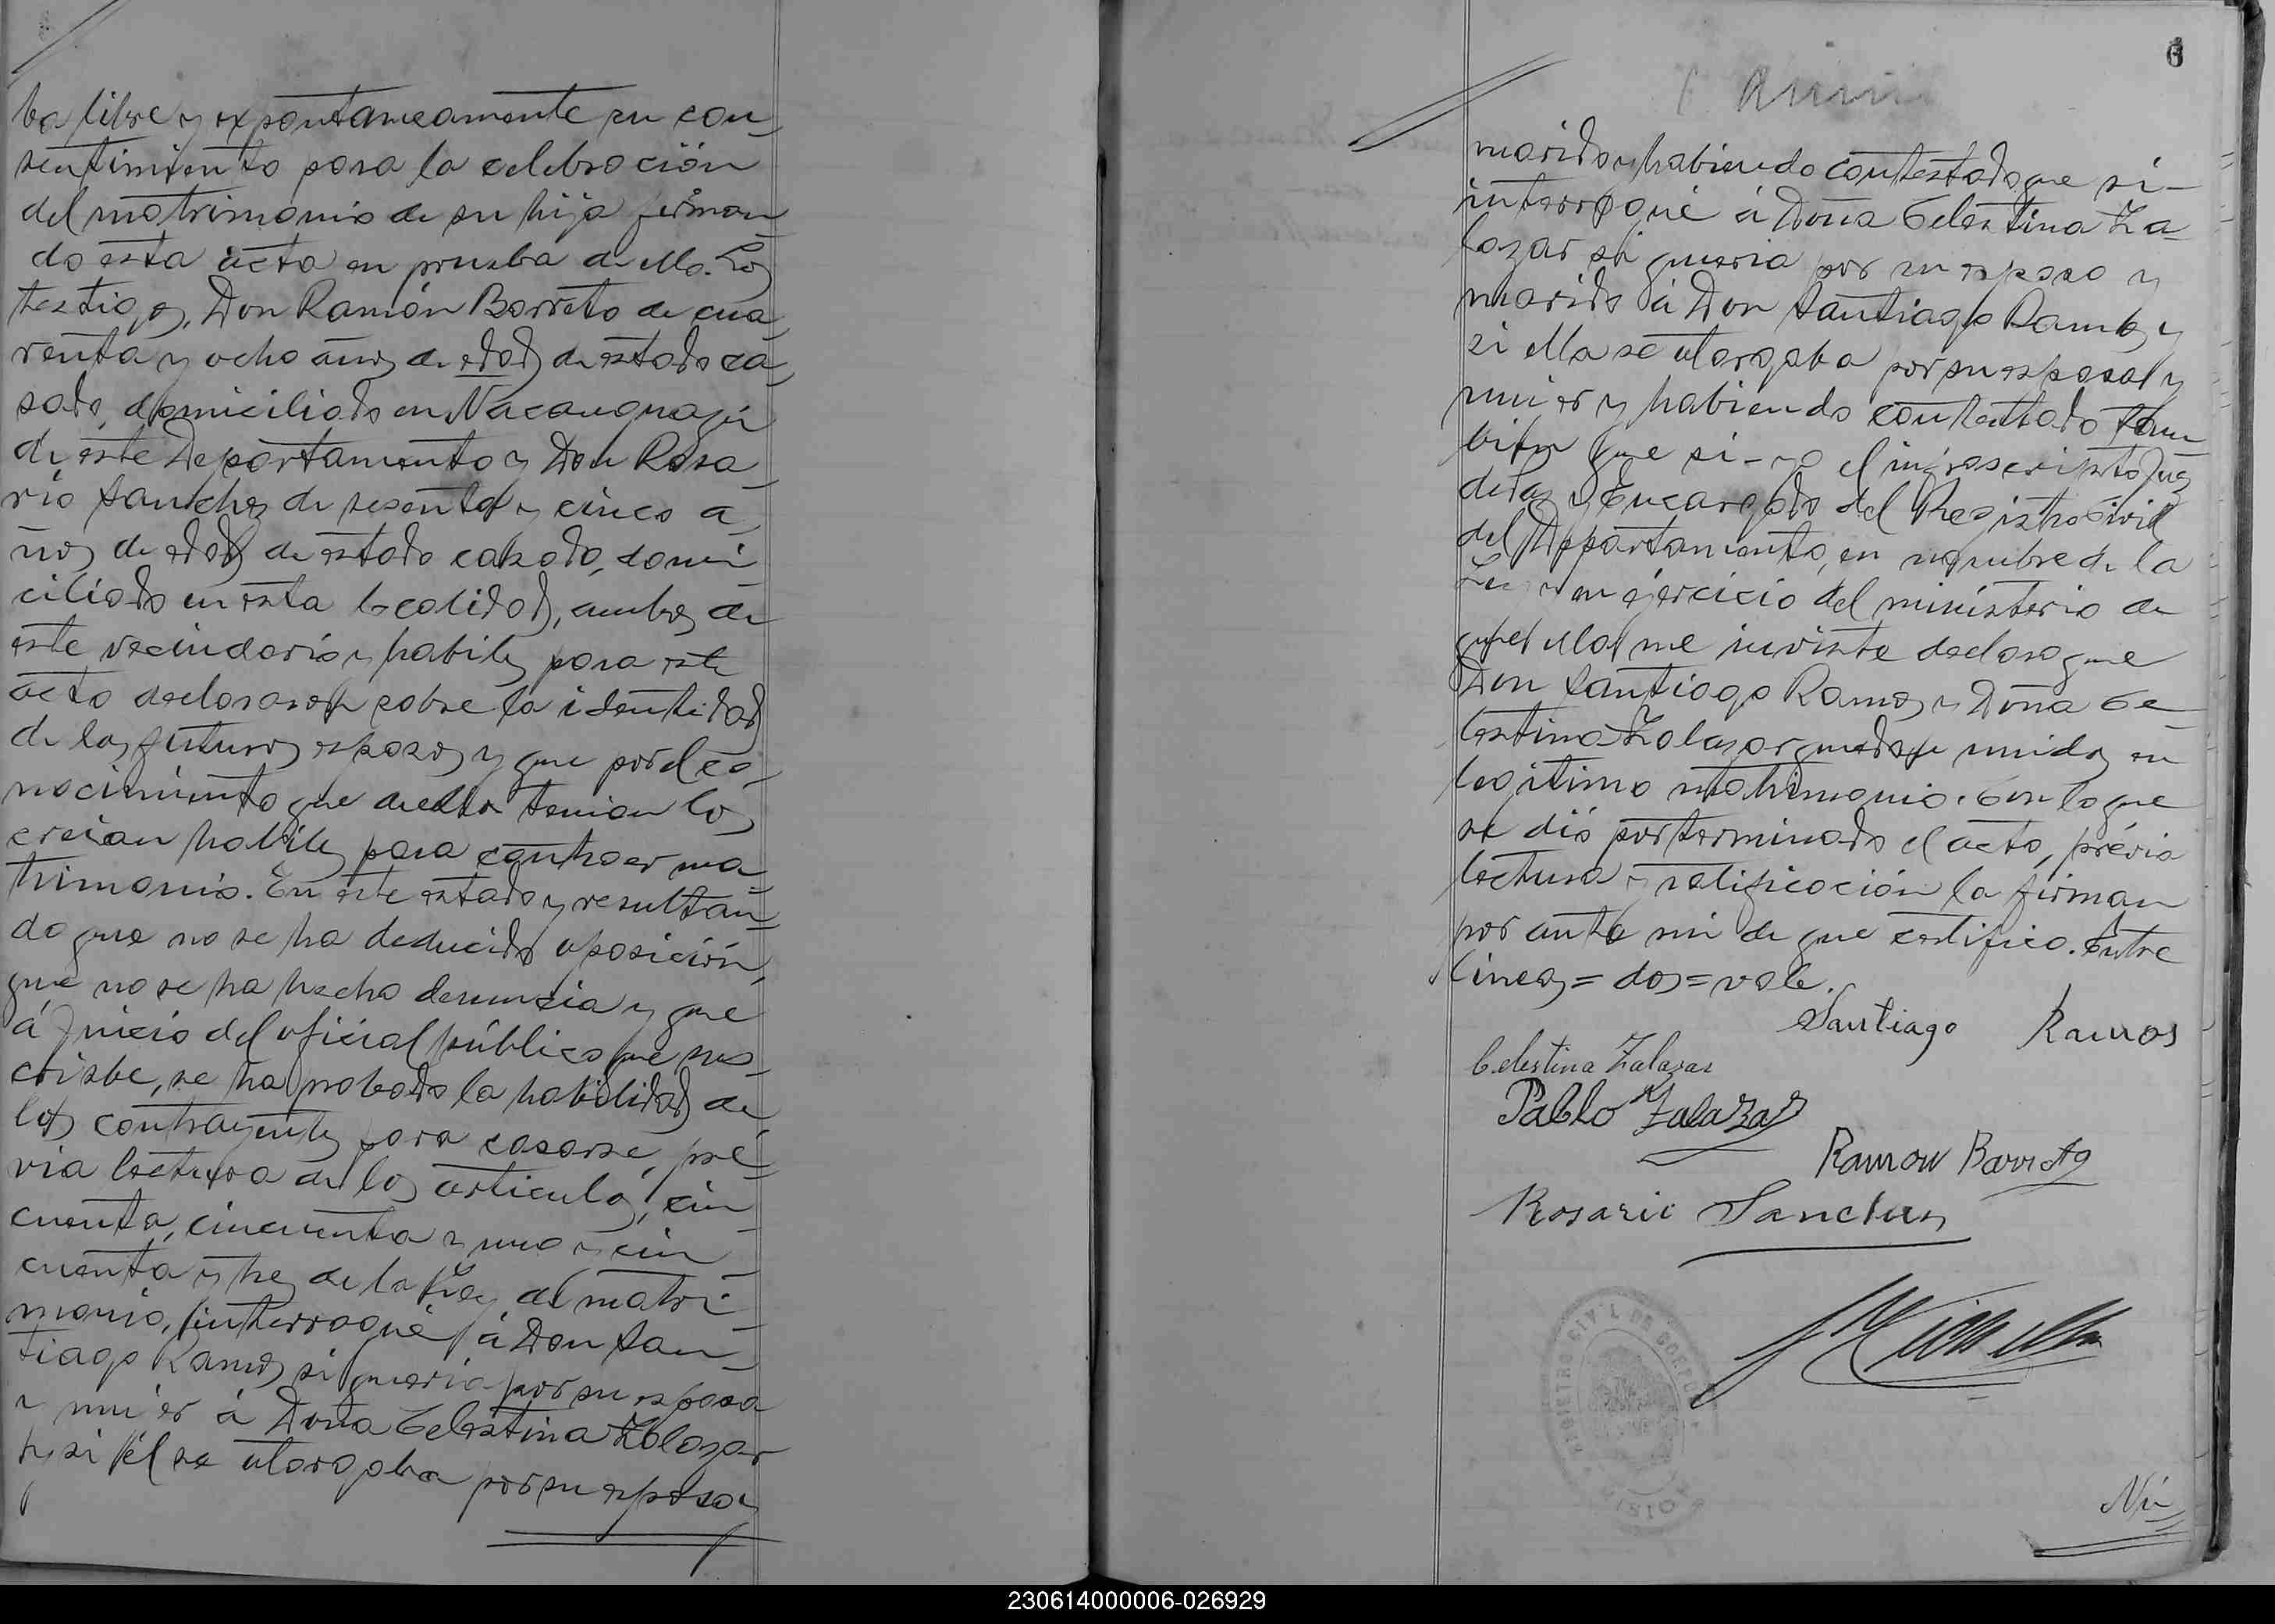 ba libre y expontaneamente su con-
sentimiento para la celebración
del matrimonio de su hija firman-
do esta acta en prueba de ello. Los
testigos, Don Ramón Barreto de cua-
renta y ocho años de edad, de estado ca-
sado, domiciliado en
de este Departamento y Don Rosa-
rio Sanchez de sesenta y cinco a-
ños de edad, de estado casado, domi-
ciliado en esta localidad, ambos de
este vecindario y habiles para este
acto declararon sobre la identidad
de los futuros esposos y que por el co-
nocimiento que de ellos tenian los
creian habiles para contraer ma-
trimonio. En este estado y resultan-
do que no se ha deducido oposición,
que no se ha hecho denuncia y que
á juicio del oficial público que sus-
cribe, se ha probado la habilidad de
los contrayentes para casarse, pré-
via lectura de los articulos, cin-
cuenta, cincuenta y uno y cin-
cuenta y tres de la Ley del matri-
monio, interrogué á Don San-
tiago Ramos si queria por su esposa
y mujer á Doña Celestina Zalazar
y si él se otorgaba por su esposo y
6
marido y habiendo contestado que si-
interrogué á Doña Celestina Za-
lazar si queria por su esposo y
marido á Don Santiago Ramos y
si ella se otorgaba por su esposa y
mujer y habiendo contestado tam-
bien que si- yo el infrascripto Juez
de Paz y Encargado del Registro Civil
del Departamento, en nombre de la
Ley y en ejercicio del ministerio de
que ella me inviste declaro que
Don Santiago Ramos y Doña Ce-
lestina Zalazar quedan unidos en
legitimo matrimonio. Con lo que
se dió por terminado el acto, prévia
lectura y ratificación la firman
por ante mi de que certifico. Entre
lineas = dos = vale.
Santiago Ramos
Celestina Zalazar
Pablo Zalazar
Ramon Barreto
Rosario Sanchez
REGISTRO CIVIL DE
Nú
230614000006-026929